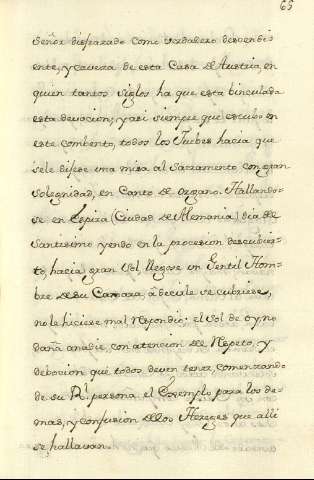 65
Señor disfrazado como verdadero descendi=
ente, y caveza de esta Casa de Austria, en
quien tantos siglos ha que esta binculada
esta devocion; y asi siempre que estubo en
este combento, todos los Juebes hacia que
se le dijese una misa al Sacramento con gran
solegnidad, en Canto de Organo. Hallando=
se en Espira (Ciudad de Alemania) dia de
santisimo yendo en la procesion descubier=
to, hacia gran Sol, llegose un Gentil Hom=
bre de su Camara, â decirle se cubriese,
no le hiciese mal Respondio: el Sol de oy no
daña anadie, con atencion de Respeto, y
debocion que todos deven tener, comenzando
de su Rl. persona, el Exemplo para los de=
mas, y confusion de los Hereges que alli
se hallavan.